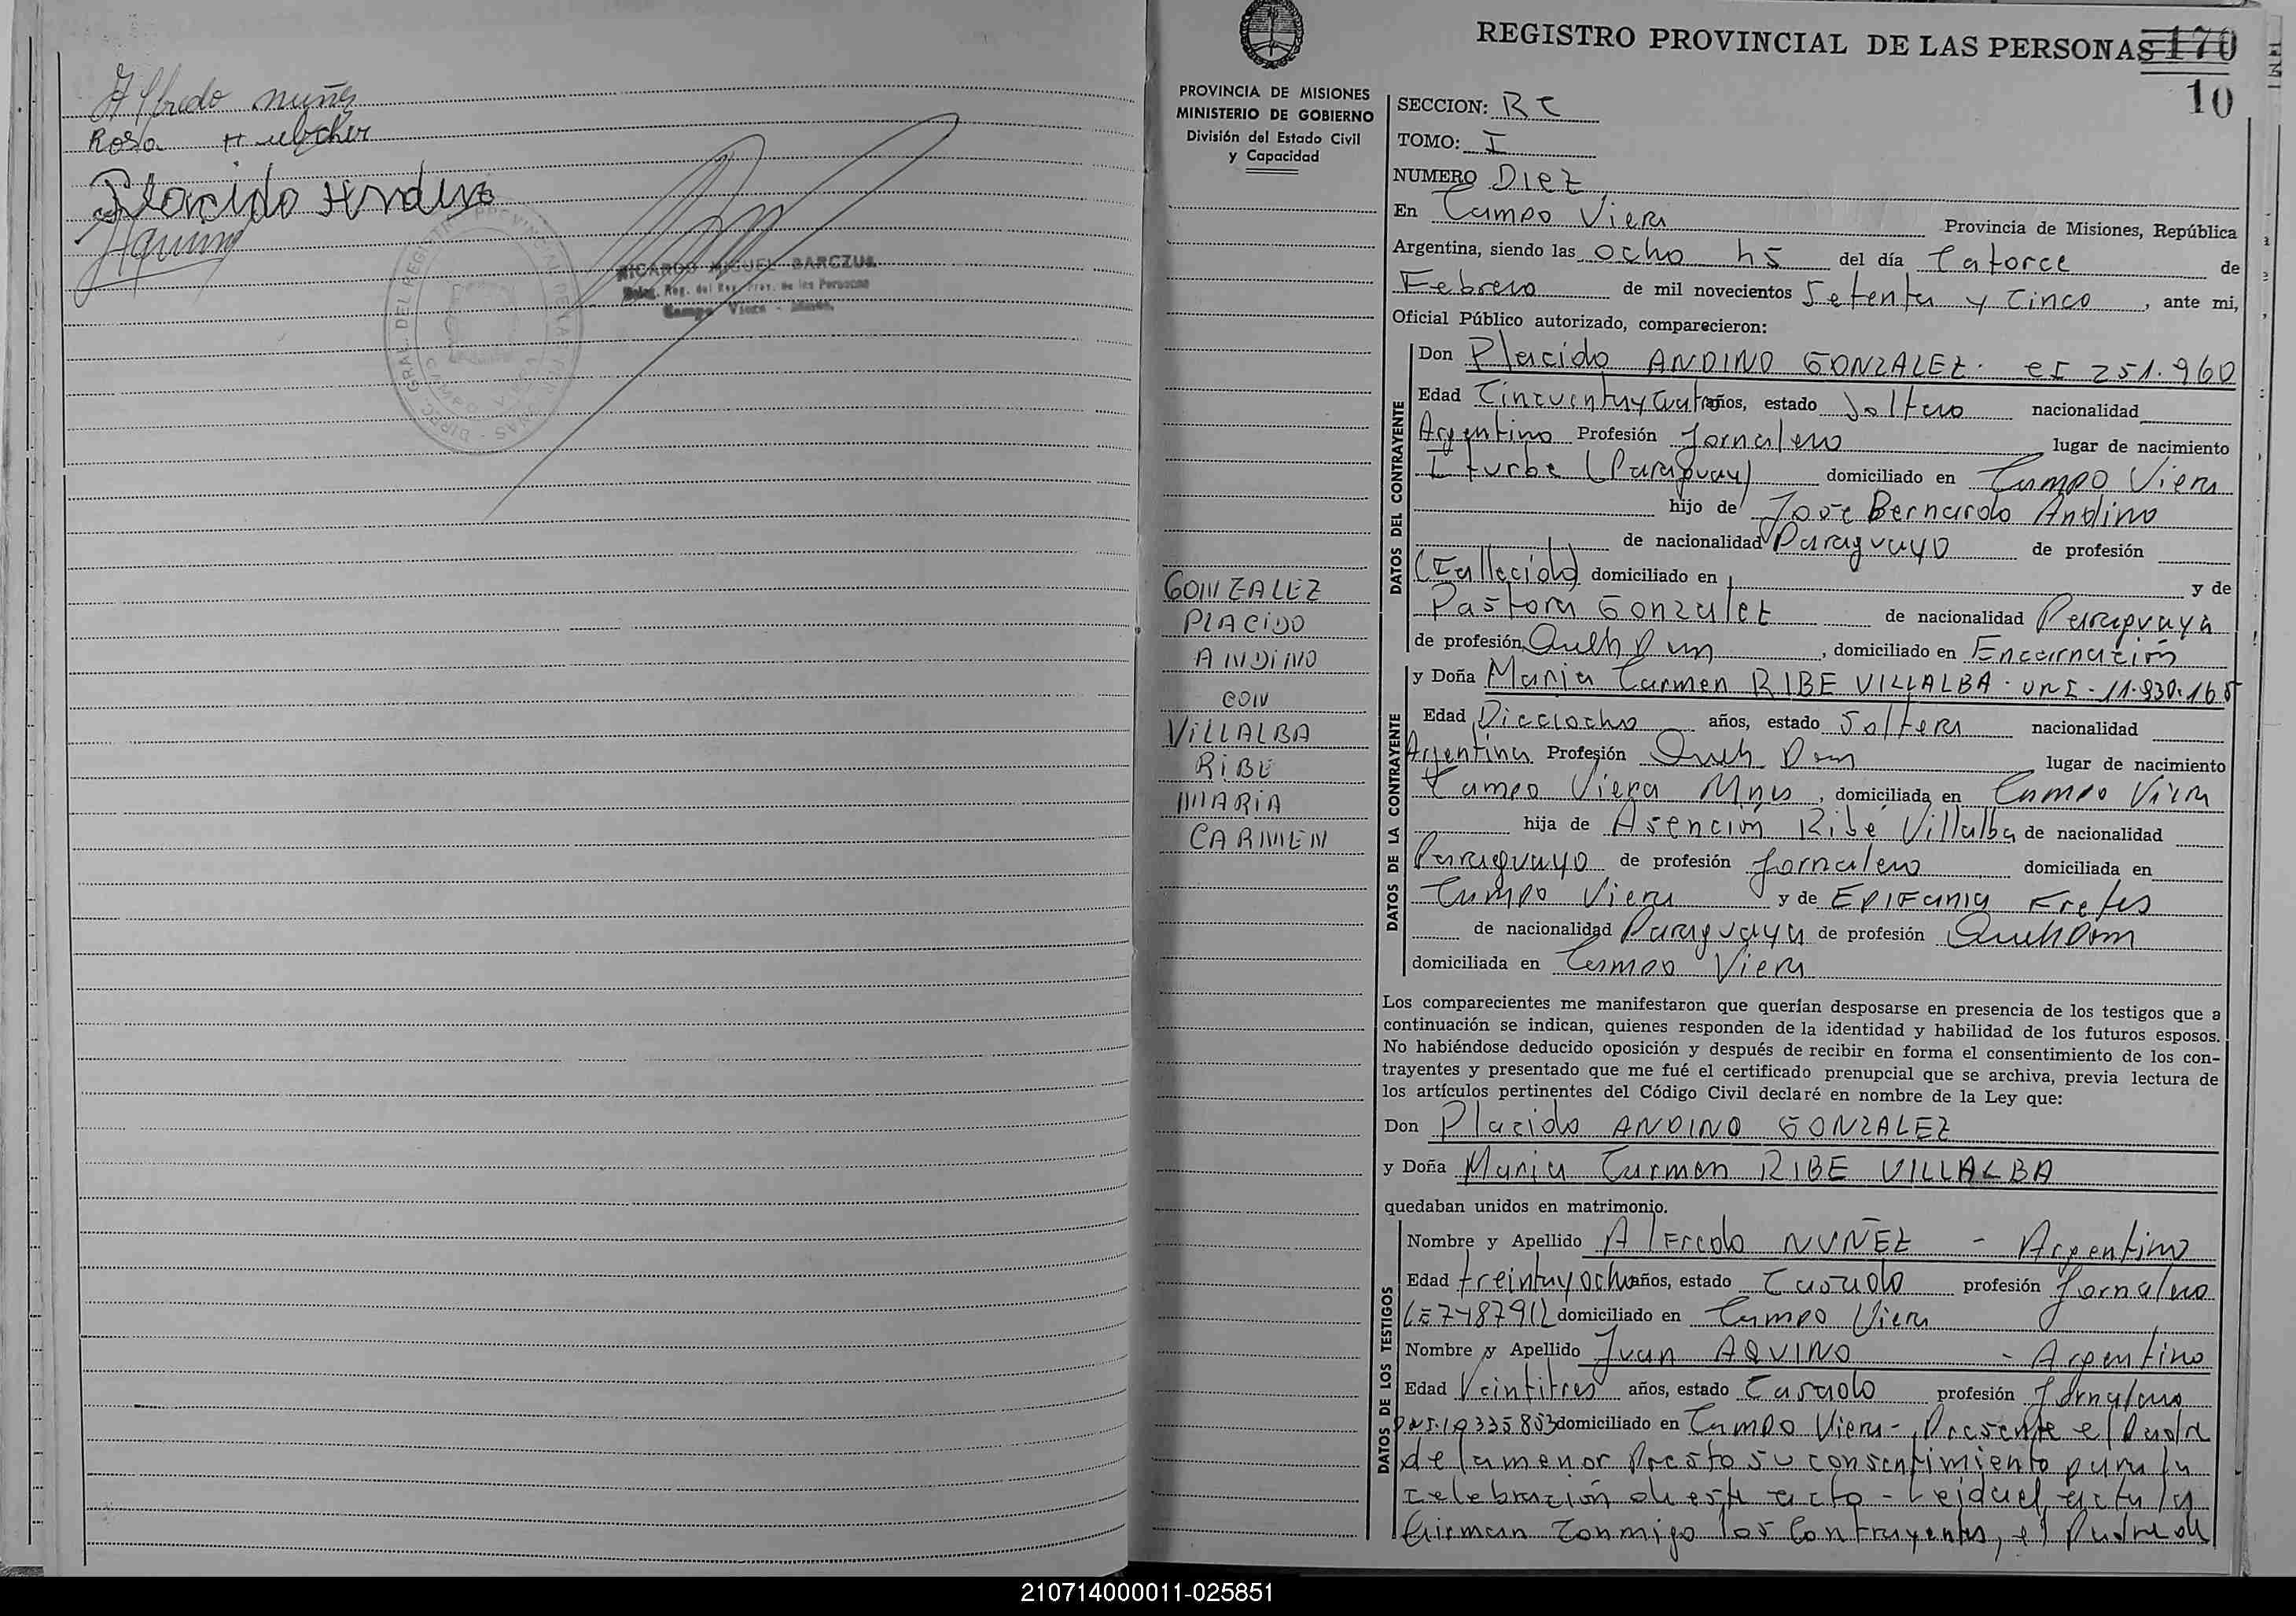 Alfredo Nuñez
Rosa
Placido Andino
Aquino
RICARDO MIGUEL BARCZUK
Deleg. Reg. del Reg. Prov. de las Personas
Campo Viera - Mnes.
REGISTRO PROVINCIAL DE LAS PERSONAS 170
10
PROVINCIA DE MISIONES
MINISTERIO DE GOBIERNO
División del Estado Civil
y Capacidad
GONZALEZ
PLACIDO
ANDINO
CON
VILLALBA
RIBE
MARIA
CARMEN
SECCION: RC
TOMO: I
NUMERO DIEZ
En Campo Viera Provincia de Misiones, República
Argentina, siendo las ocho hs del día Catorce de
Febrero de mil novecientos Setenta y Cinco, ante mi,
Oficial Público autorizado, comparecieron:
DATOS DEL CONTRAYENTE
Don Placido ANDINO GONZALEZ. CI 251.960
Edad Cincuentaycuatro años, estado Soltero nacionalidad
Argentino Profesión Jornalero lugar de nacimiento
Iturbe (Paraguay) domiciliado en Campo Viera
hijo de Jose Bernardo Andino
de nacionalidad Paraguayo de profesión
(Fallecido) domiciliado en y de
Pastora Gonzalez de nacionalidad Paraguaya
de profesión Queh Dom, domiciliado en Encarnación
DATOS DE LA CONTRAYENTE
y Doña Maria Carmen RIBE VILLALBA. DNI. 11.930.165
Edad Dieciocho años, estado Soltera nacionalidad
Argentina Profesión Queh Dom lugar de nacimiento
Campo Viera Mnes, domiciliada en Campo Viera
hija de Asención Ribé Villalba de nacionalidad
Paraguayo de profesión Jornalero domiciliada en
Campo Viera y de EPIFania Fretes
de nacionalidad Paraguaya de profesión QuehDom
domiciliada en Campo Viera
Los comparecientes me manifestaron que querían desposarse en presencia de los testigos que a
continuación se indican, quienes responden de la identidad y habilidad de los futuros esposos.
No habiéndose deducido oposición y después de recibir en forma el consentimiento de los con-
trayentes y presentado que me fué el certificado prenupcial que se archiva, previa lectura de
los artículos pertinentes del Código Civil declaré en nombre de la Ley que:
Don Placido ANDINO GONZALEZ
y Doña Maria Carmen RIBE VILLALBA
quedaban unidos en matrimonio.
DATOS DE LOS TESTIGOS
Nombre y Apellido Alfredo NUÑEZ - Argentino
Edad treintayocho años, estado Casado profesión Jornalero
domiciliado en Campo Viera
Nombre y Apellido Juan AQUINO - Argentino
Edad Veintitres años, estado Casado profesión Jornalero
DNI.10335853 domiciliado en Campo Viera - Presente el Padre
de la menor Presto su consentimiento para la
celebración de este acto - Leida el acta la
Firman conmigo los Contrayentes, el Padre de
210714000011-025851